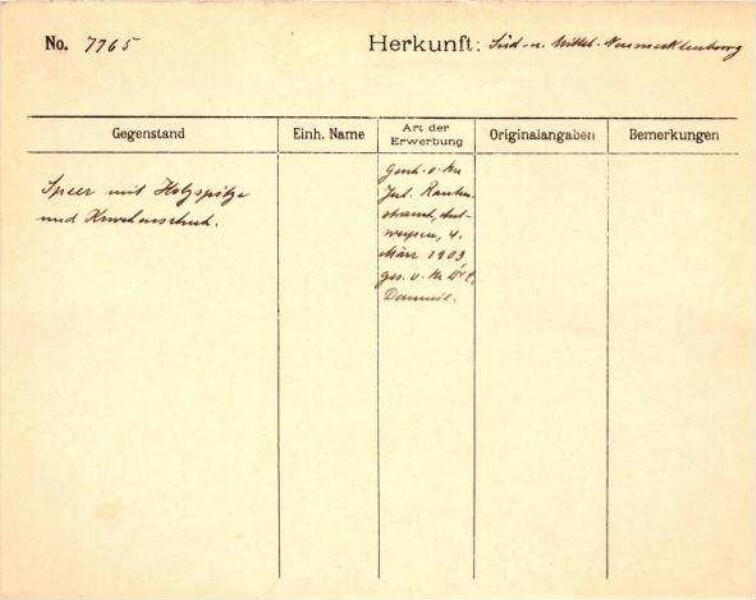 No. 7765 Herkunft: Süd- u. Mittel-Neumecklenburg
Gegenstand Einh. Name Art der Erwerbung Originalangaben Bemerkungen
Speer mit Holzspitze
und Knochenschuh.
Gesch. v. Hn
Jul. Rauten-
strauch, Ant-
werpen, 4.
März 1909
ges. v. Hn